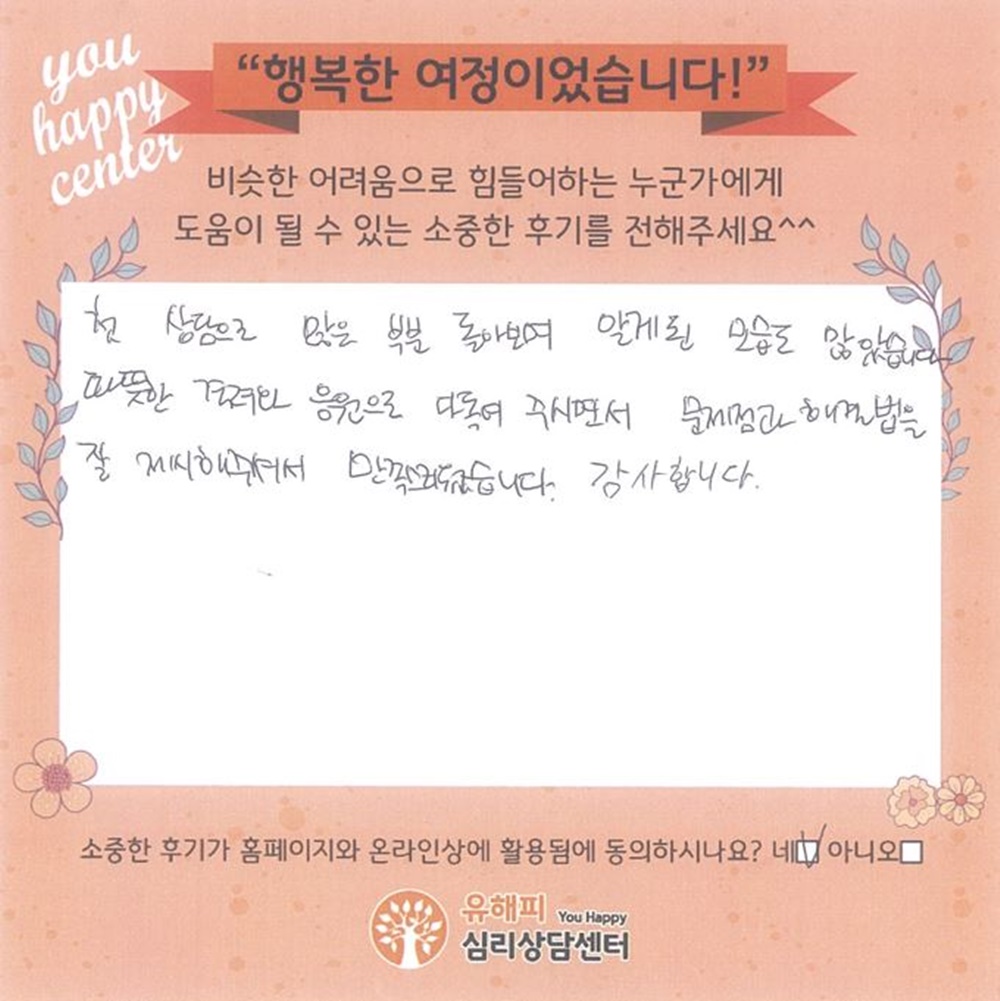 you
happy
center
“행복한 여정이었습니다!”
비슷한 어려움으로 힘들어하는 누군가에게
도움이 될 수 있는 소중한 후기를 전해주세요^^
첫 상담으로 많은 부분 돌아보며 알게된 모습도 많았습니다
따뜻한 격려와 응원으로 다독여 주시면서 문제점과 해결법을
잘 제시해주셔서 만족스러웠습니다. 감사합니다.
소중한 후기가 홈페이지와 온라인상에 활용됨에 동의하시나요? 네 아니오
유해피 You Happy
심리상담센터